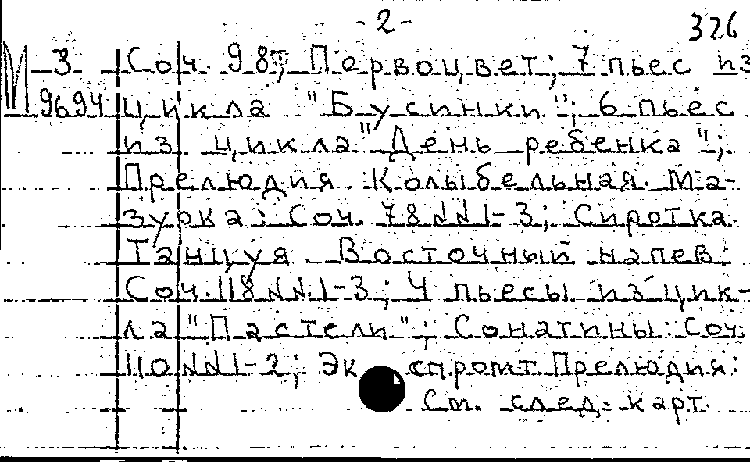 -2- 326
М 3 Соч. 98; Первоцвет; 7 пьес из
9694 цикла "Бусинки"; 6 пьес
из цикла "День ребенка";
Прелюдия. Колыбельная. Ма-
зурка: Соч. 78 NN 1-3; Сиротка.
Танцуя. Восточный напев:
Соч. 118 NN 1-3; 4 пьесы из цик-
ла "Пастели"; Сонатины: Соч.
110 NN 1-2; Эк спромт. Прелюдия:
См. след. карт.